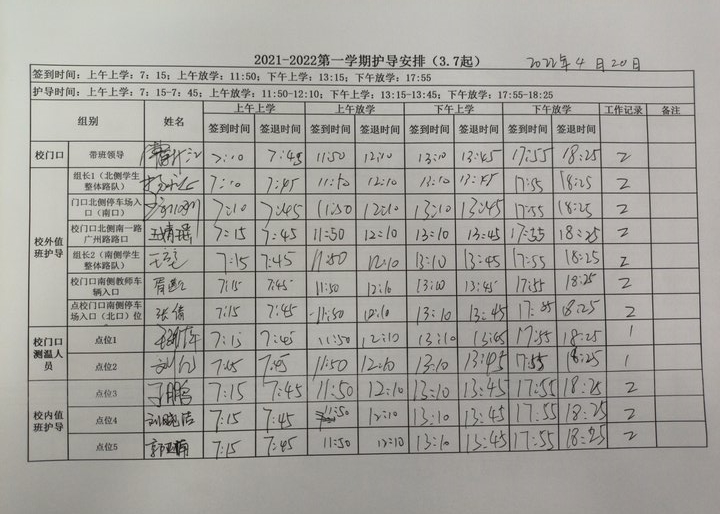 2021-2022第一学期护导安排（3.7起） 2022年4月20日
签到时间：上午上学：7：15；上午放学：11:50；下午上学：13:15；下午放学：17:55
护导时间：上午上学：7：15-7：45；上午放学：11:50-12:10；下午上学：13:15-13:45；下午放学：17:55-18:25
组别 姓名 上午上学 上午放学 下午上学 下午放学 工作记录 备注
签到时间 签退时间 签到时间 签退时间 签到时间 签退时间 签到时间 签退时间
校门口 带班领导 7:10 7:45 11:50 12:10 13:10 13:45 17:55 18:25 2
校外值班护导
组长1（北侧学生整体路队） 7:10 7:45 11:50 12:10 13:10 13:45 17:55 18:25 2
门口北侧停车场入口（南口） 7:10 7:45 11:50 12:10 13:10 13:45 17:55 18:25 2
校门口北侧南一路广州路路口 7:15 7:45 11:50 12:10 13:10 13:45 17:55 18:25 2
组长2（南侧学生整体路队） 7:15 7:45 11:50 12:10 13:10 13:45 17:55 18:25 2
校门口南侧教师车辆入口 7:15 7:45 11:50 12:10 13:10 13:45 17:55 18:25 2
点校门口南侧停车场入口（北口）位 张倩 7:15 7:45 11:50 12:10 13:10 13:45 17:55 18:25 2
校门口测温人员
点位1 7:15 7:45 11:50 12:10 13:10 13:45 17:55 18:25 1
点位2 7:45 7:45 11:50 12:10 13:10 13:45 17:55 18:25 1
校内值班护导
点位3 丁鹏 7:15 7:45 11:50 12:10 13:10 13:45 17:55 18:25 2
点位4 刘晓洁 7:15 7:45 11:50 12:10 13:10 13:45 17:55 18:25 2
点位5 7:15 7:45 11:50 12:10 13:10 13:45 17:55 18:25 2